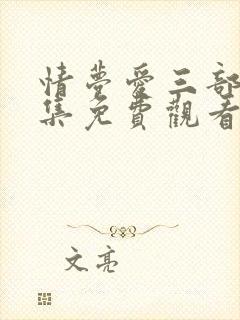 情夢愛三部
集免費觀看
文亮